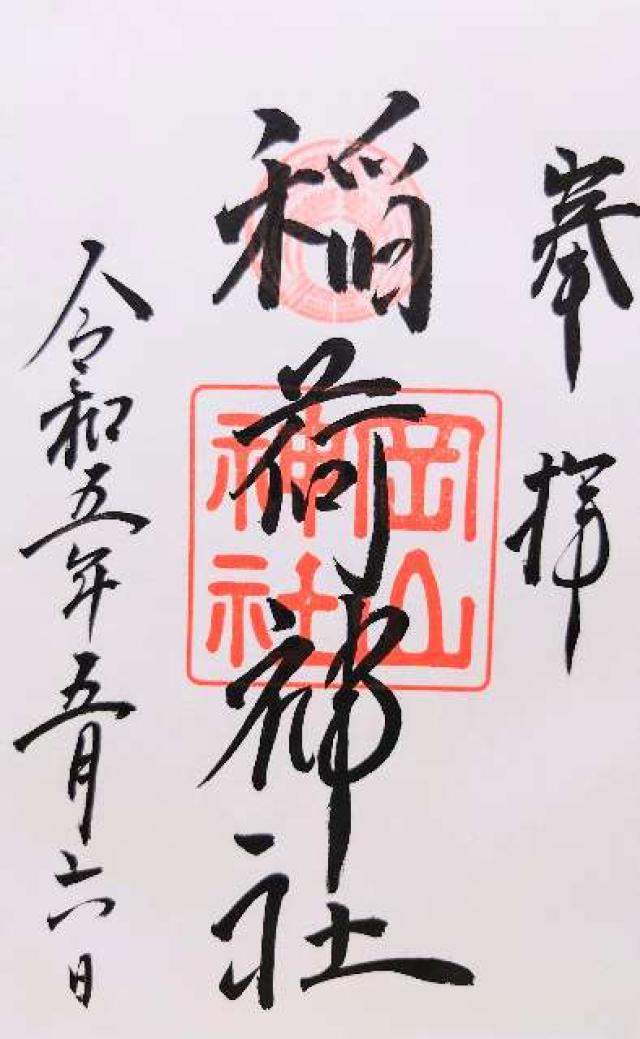 奉拝
稲荷神社
岡山
神社
令和五年五月六日